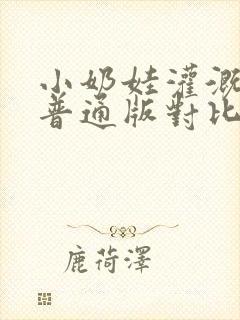 小奶娃灌溉
普通版對比
鹿荷澤